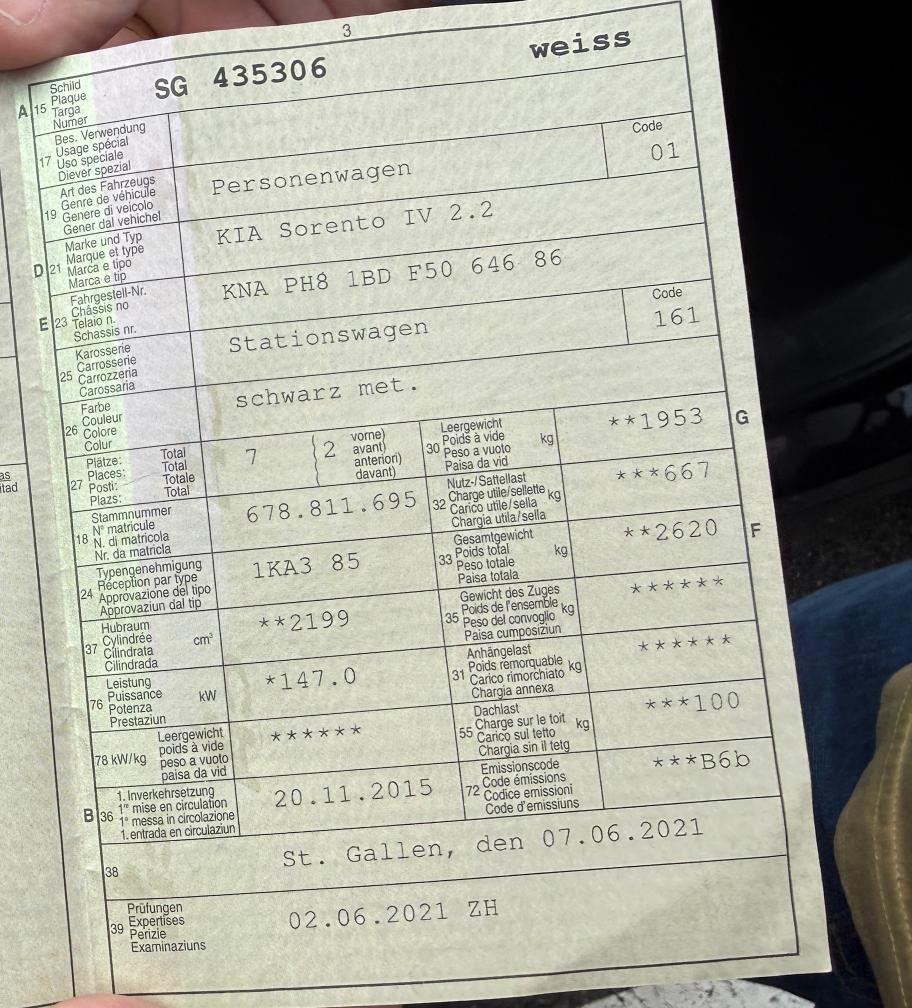 3
A 15 Schild Plaque Targa Numer SG 435306 weiss
17 Bes. Verwendung Usage spécial Uso speciale Diever spezial
19 Art des Fahrzeugs Genre de véhicule Genere di veicolo Gener dal vehichel Personenwagen Code 01
D 21 Marke und Typ Marque et type Marca e tipo Marca e tip KIA Sorento IV 2.2
E 23 Fahrgestell-Nr. Châssis no Telaio n. Schassis nr. KNA PH8 1BD F50 646 86
25 Karosserie Carrosserie Carrozzeria Carossaria Stationswagen Code 161
26 Farbe Couleur Colore Colur schwarz met.
27 Plätze: Total Places: Total Posti: Totale Plazs: Total 7 2 vorne) avant) anteriori) davant)
30 Leergewicht Poids à vide Peso a vuoto Paisa da vid kg **1953 G
18 Stammnummer N° matricule N. di matricola Nr. da matricla 678.811.695
32 Nutz-/Sattellast Charge utile/sellette Carico utile/sella Chargia utila/sella kg ***667
24 Typengenehmigung Réception par type Approvazione del tipo Approvaziun dal tip 1KA3 85
33 Gesamtgewicht Poids total Peso totale Paisa totala kg **2620 F
37 Hubraum Cylindrée Cilindrata Cilindrada cm³ **2199
35 Gewicht des Zuges Poids de l'ensemble Peso del convoglio Paisa cumposiziun kg ******
76 Leistung Puissance Potenza Prestaziun kW *147.0
31 Anhängelast Poids remorquable Carico rimorchiato Chargia annexa kg ******
78 kW/kg Leergewicht poids à vide peso a vuoto paisa da vid ******
55 Dachlast Charge sur le toit Carico sul tetto Chargia sin il tetg kg ***100
B 36 1. Inverkehrsetzung 1re mise en circulation 1a messa in circolazione 1. entrada en circulaziun 20.11.2015
72 Emissionscode Code émissions Codice emissioni Code d'emissiuns ***B6b
38 St. Gallen, den 07.06.2021
39 Prüfungen Expertises Perizie Examinaziuns 02.06.2021 ZH